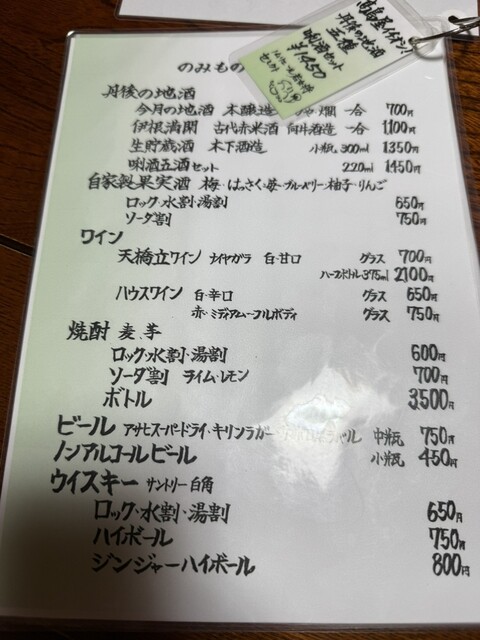 丹後の地酒
五種
唎酒セット
¥1450
のみもの
丹後の地酒
今月の地酒 本醸造 燗 一合 700円
伊根満開 古代赤米酒 向井酒造 一合 1,100円
生貯蔵酒 木下酒造 小瓶, 300ml 1350円
唎酒五酒セット 220ml 1450円
自家製果実酒 梅・はっさく・苺・ブルーベリー・柚子・りんご
ロック・水割・湯割 650円
ソーダ割 750円
ワイン
天橋立ワイン ナイヤガラ 白・甘口 グラス 700円
ハーフボトル375ml 2100円
ハウスワイン 白・辛口 グラス 650円
赤・ミディアム〜フルボディ グラス 750円
焼酎 麦・芋
ロック・水割・湯割 600円
ソーダ割 ライム・レモン 700円
ボトル 3,500円
ビール アサヒスーパードライ・キリンラガー 中瓶 750円
ノンアルコールビール 小瓶 450円
ウイスキー サントリー白角
ロック・水割・湯割 650円
ハイボール 750円
ジンジャーハイボール 800円